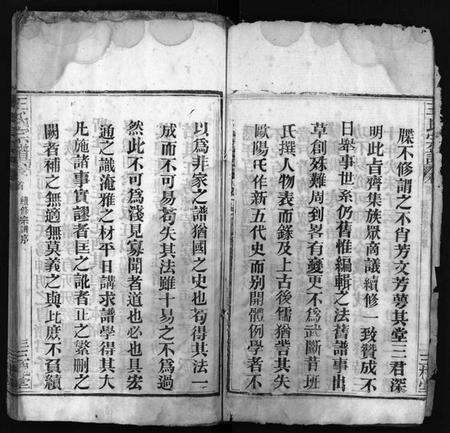 牒不修謂之不肖芳文芳蔓其堂三君深
明此㫖齊集族眾商議續修一致贊成不
日舉事世系仍舊惟編輯之法舊譜事出
草創殊難周到畧有變更不爲武斷昔班
氏撰人物表而錄及上古後儒猶訾其失
歐陽氏作新五代史而別開體例學者不
以爲非家之譜猶國之史也苟得其法一
成而不可易苟失其法雖十易之不爲過
然此不可爲淺見寡聞者道也必也具宏
通之識淹雅之材平日講求譜學得其大
凡施諸事實謬者匡之訛者正之繁刪之
闕者補之無適無莫義之與比庶不負續